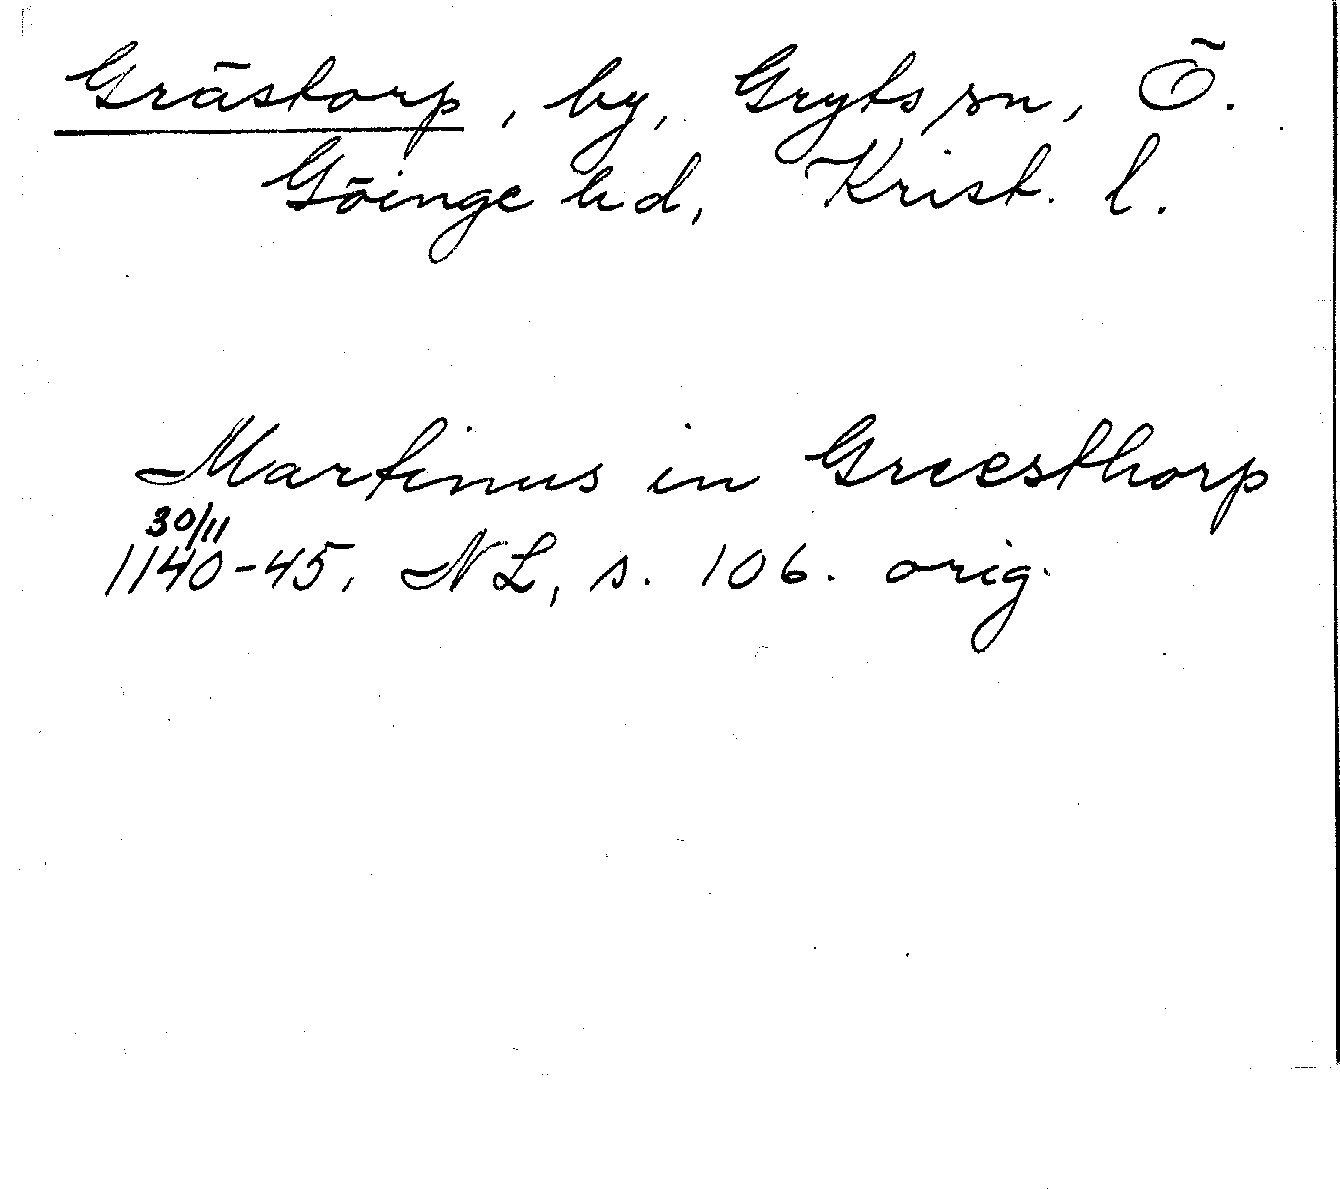 Grästorp, by, Gryts sn, Ö.
Göinge hd, Krist. l.
Martinus in Greesthorp
30/11
1140-45, NL, s. 106. orig.